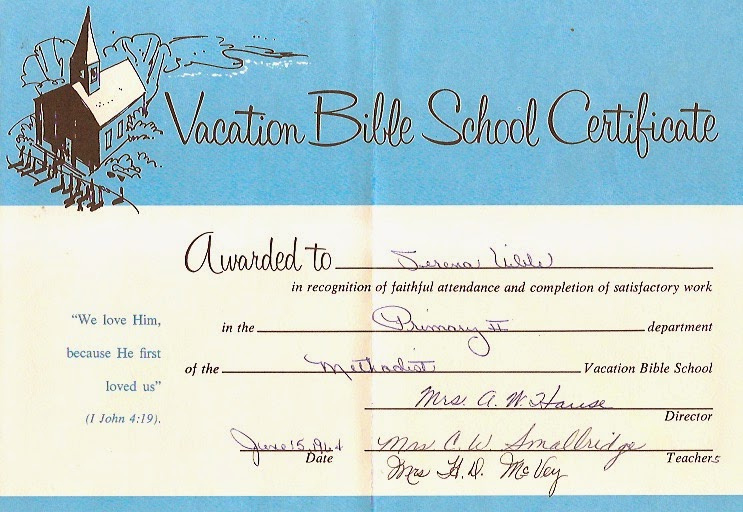 Vacation Bible School Certificate
Awarded to Serena
in recognition of faithful attendance and completion of satisfactory work
in the Primary II department
of the Methodist Vacation Bible School
"We love Him,
because He first
loved us"
(I John 4:19).
Mrs. A. W.
Director
June 15, 1964 Mrs C. W. Smallridge
Date Teachers
Mrs H. D. McVey